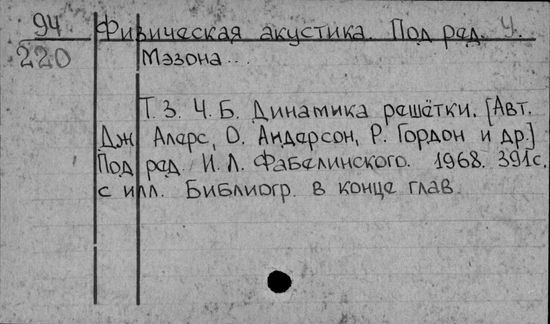 94 Физическая акустика. Под ред. У.
220 Мэзона...
Т. 3. Ч. Б. Динамика решётки. [Авт.
Дж. Алерс, О. Андерсон, Р. Гордон и др.]
Под ред. И. Л. Фабелинского. 1968. 391с.
с илл. Библиогр. в конце глав.